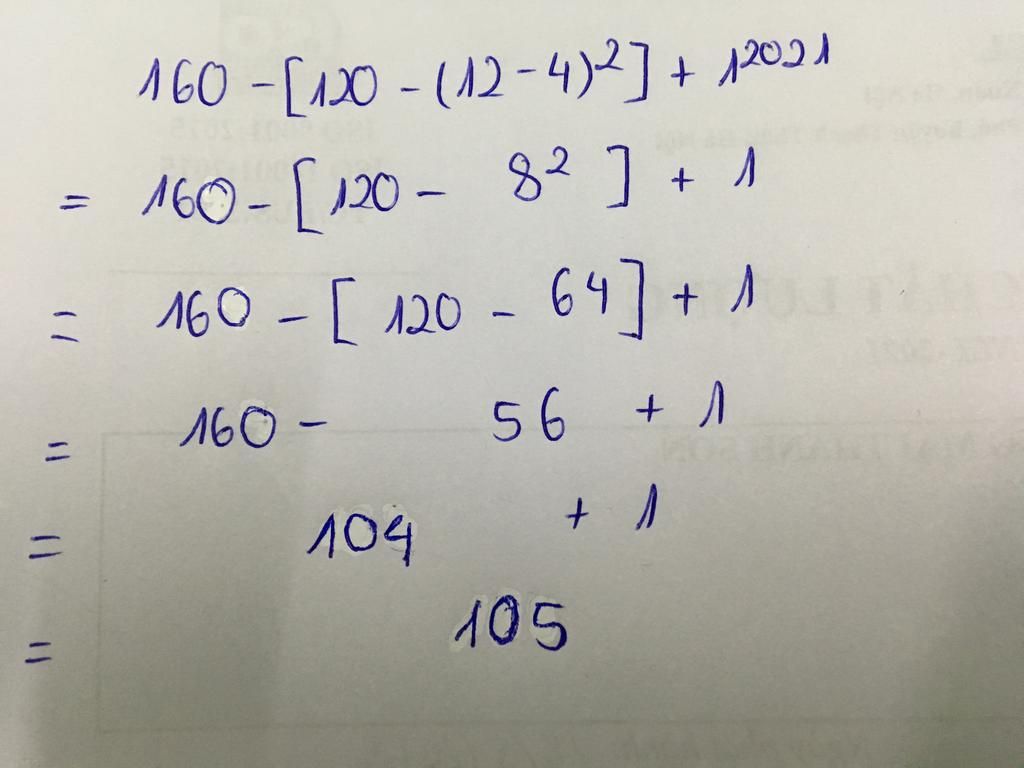 160 - [120 - (12 - 4)² ] + 1²⁰²¹
= 160 - [ 120 - 8² ] + 1
= 160 - [ 120 - 64 ] + 1
= 160 - 56 + 1
= 104 + 1
= 105